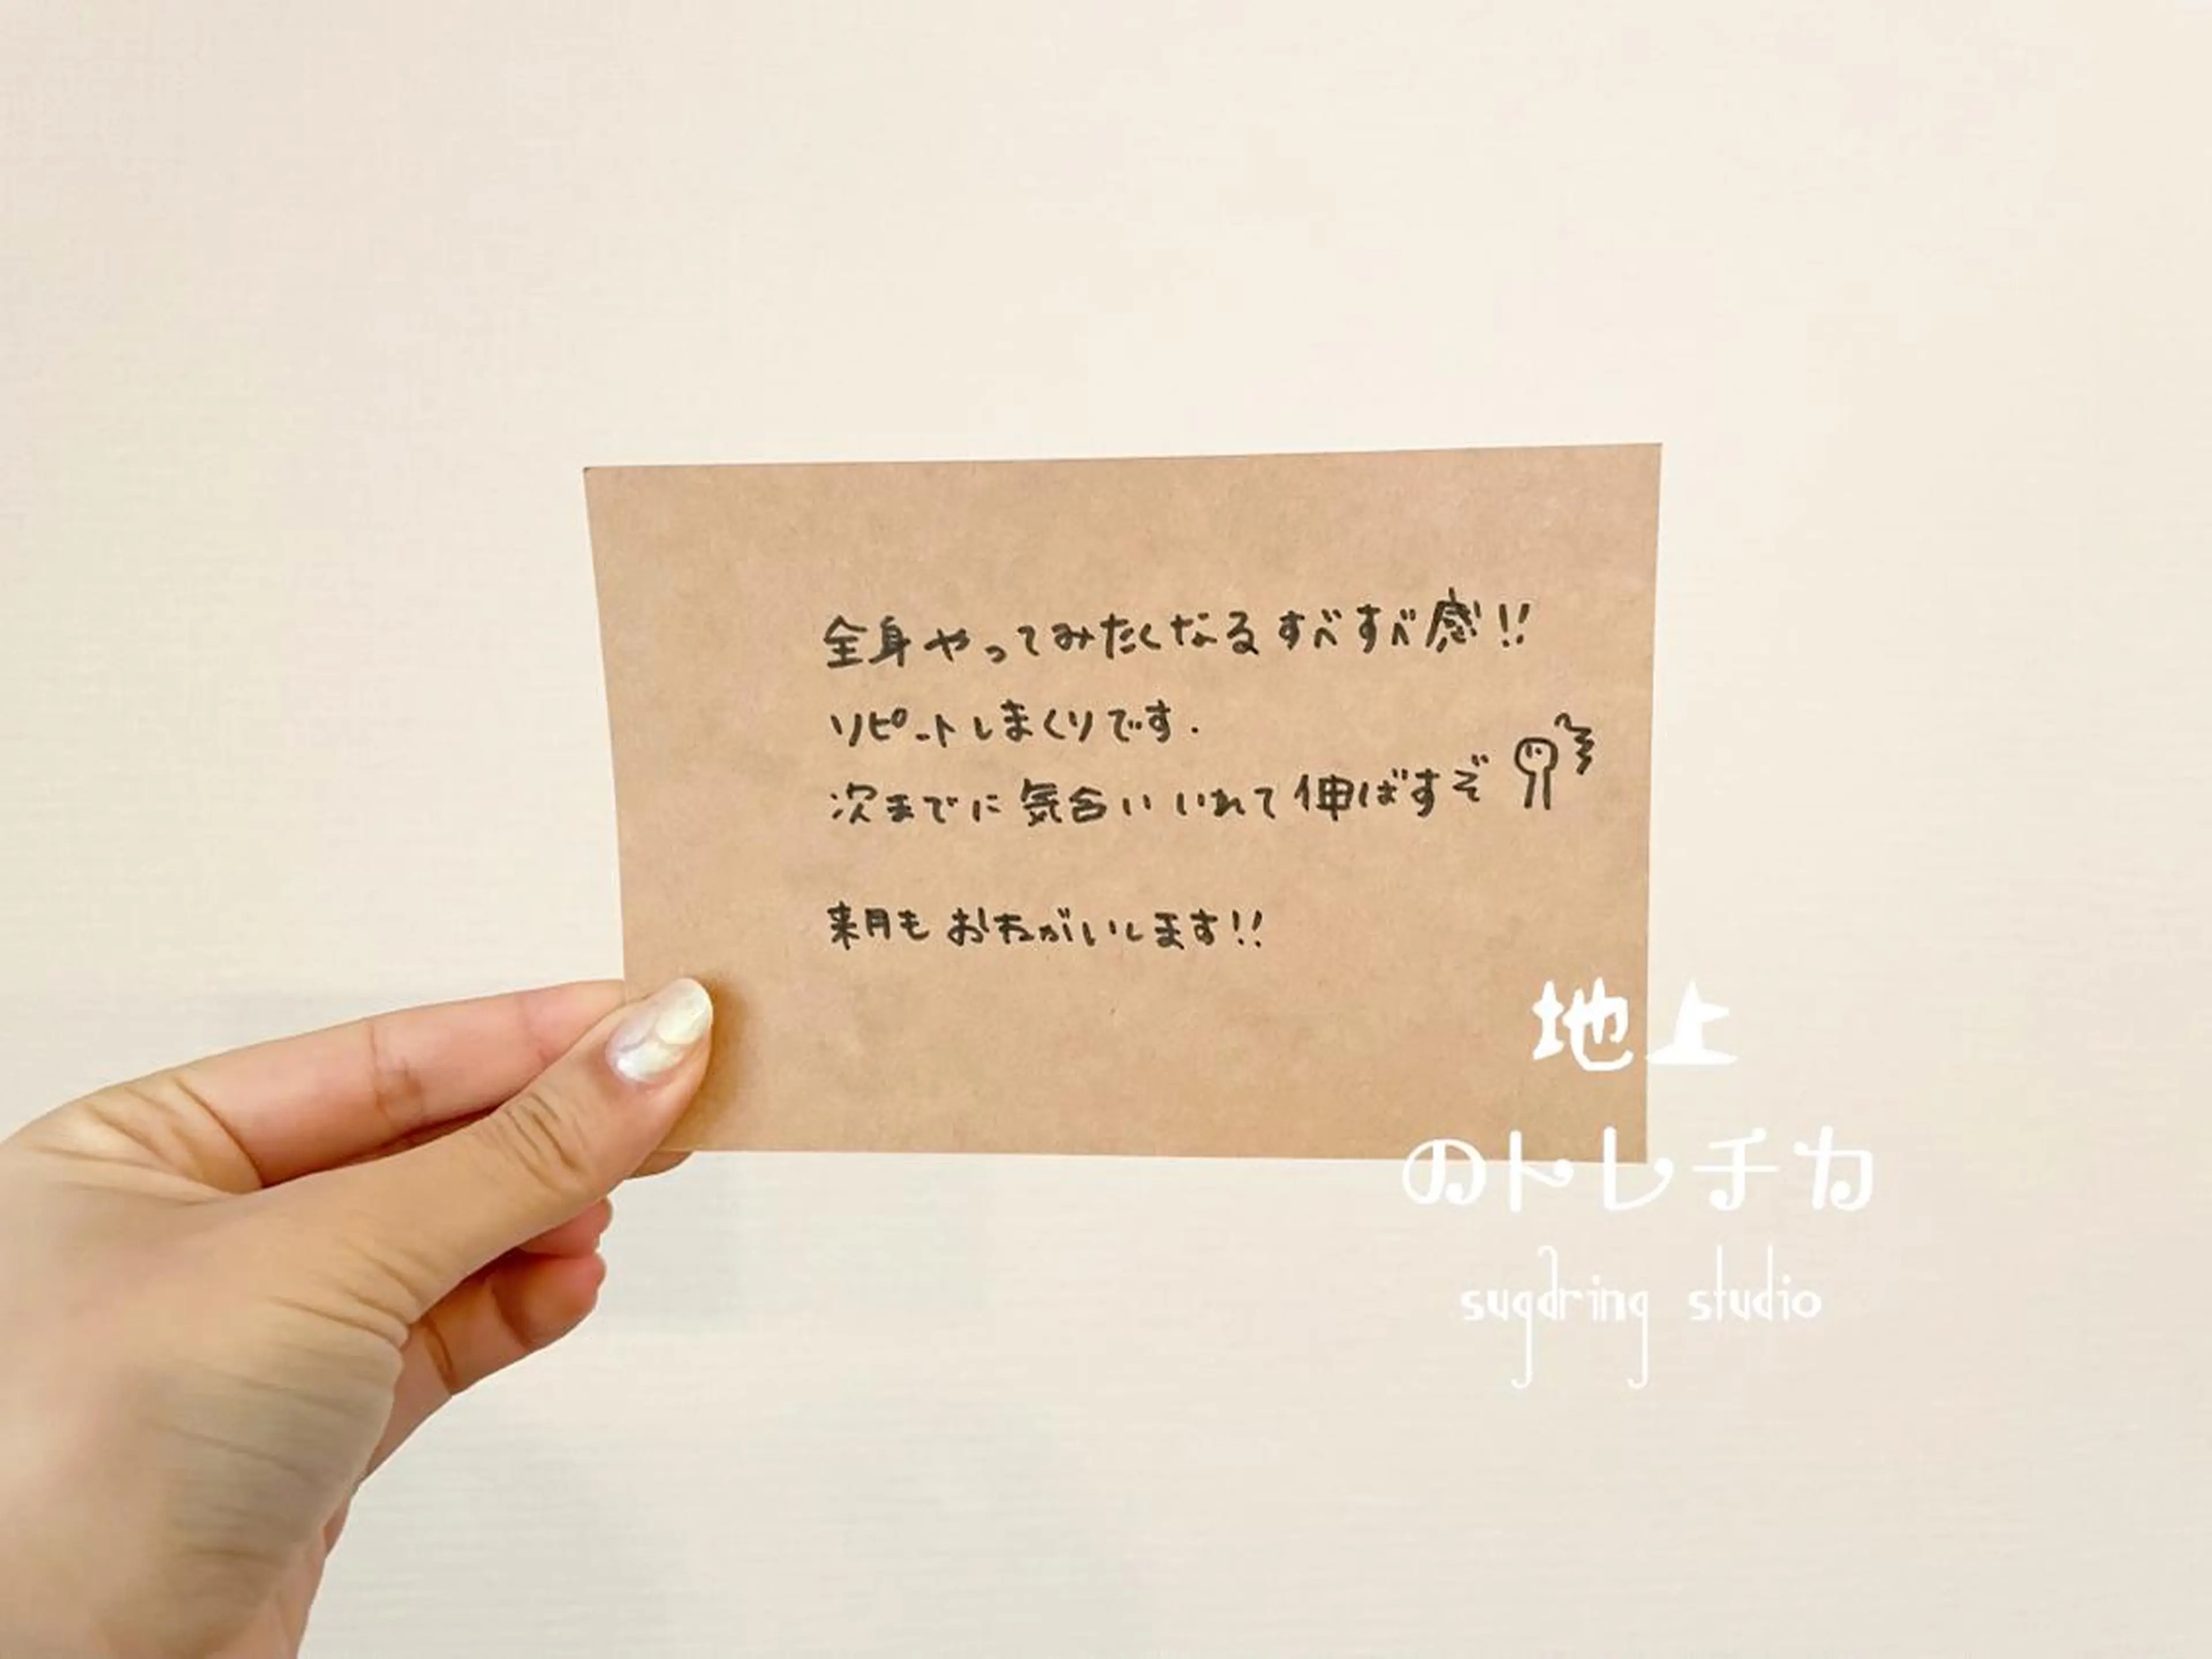 全身やってみたくなるすべすべ感!!
リピートしまくりです.
次までに気合いいれて伸ばすぞ
来月もおねがいします!!
地上
のトレチカ
sugdring studio